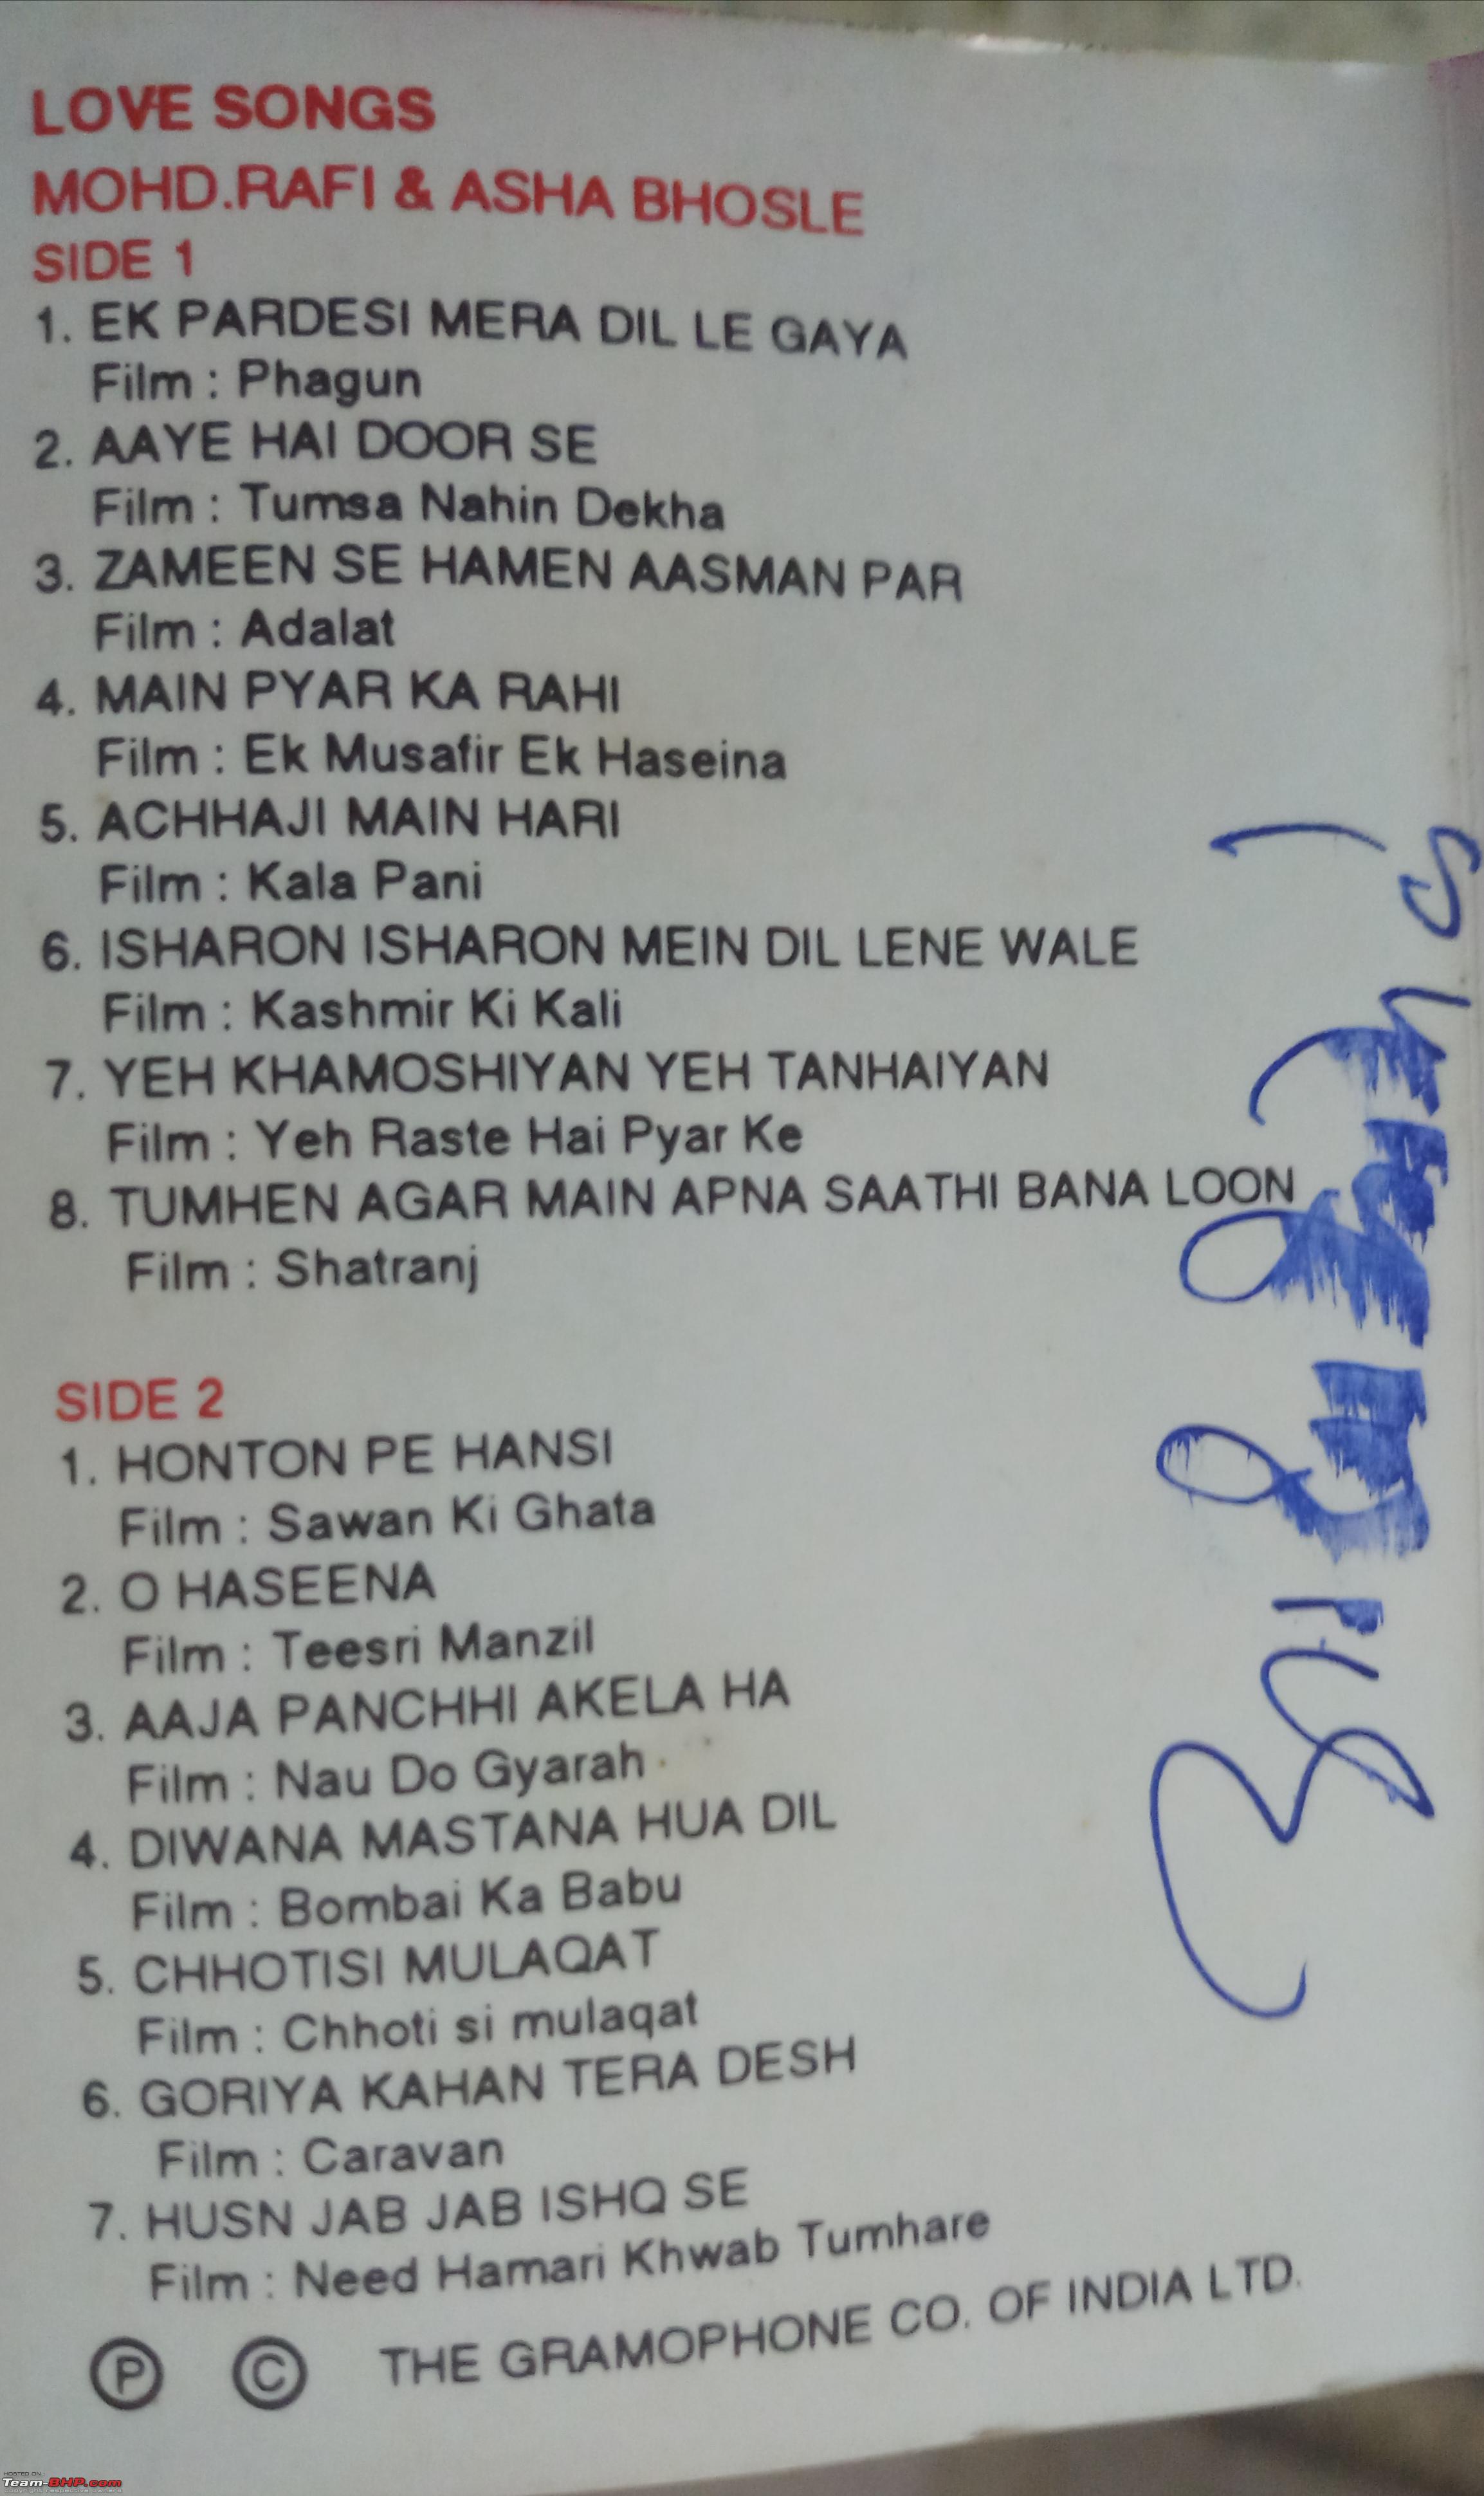 LOVE SONGS
MOHD.RAFI & ASHA BHOSLE
SIDE 1
1. EK PARDESI MERA DIL LE GAYA
Film : Phagun
2. AAYE HAI DOOR SE
Film : Tumsa Nahin Dekha
3. ZAMEEN SE HAMEN AASMAN PAR
Film : Adalat
4. MAIN PYAR KA RAHI
Film : Ek Musafir Ek Haseina
5. ACHHAJI MAIN HARI
Film : Kala Pani
6. ISHARON ISHARON MEIN DIL LENE WALE
Film : Kashmir Ki Kali
7. YEH KHAMOSHIYAN YEH TANHAIYAN
Film : Yeh Raste Hai Pyar Ke
8. TUMHEN AGAR MAIN APNA SAATHI BANA LOON
Film : Shatranj
SIDE 2
1. HONTON PE HANSI
Film : Sawan Ki Ghata
2. O HASEENA
Film : Teesri Manzil
3. AAJA PANCHHI AKELA HA
Film : Nau Do Gyarah
4. DIWANA MASTANA HUA DIL
Film : Bombai Ka Babu
5. CHHOTISI MULAQAT
Film : Chhoti si mulaqat
6. GORIYA KAHAN TERA DESH
Film : Caravan
7. HUSN JAB JAB ISHQ SE
Film : Need Hamari Khwab Tumhare
Ⓟ © THE GRAMOPHONE CO. OF INDIA LTD.
HOSTED ON :
Team-BHP.com